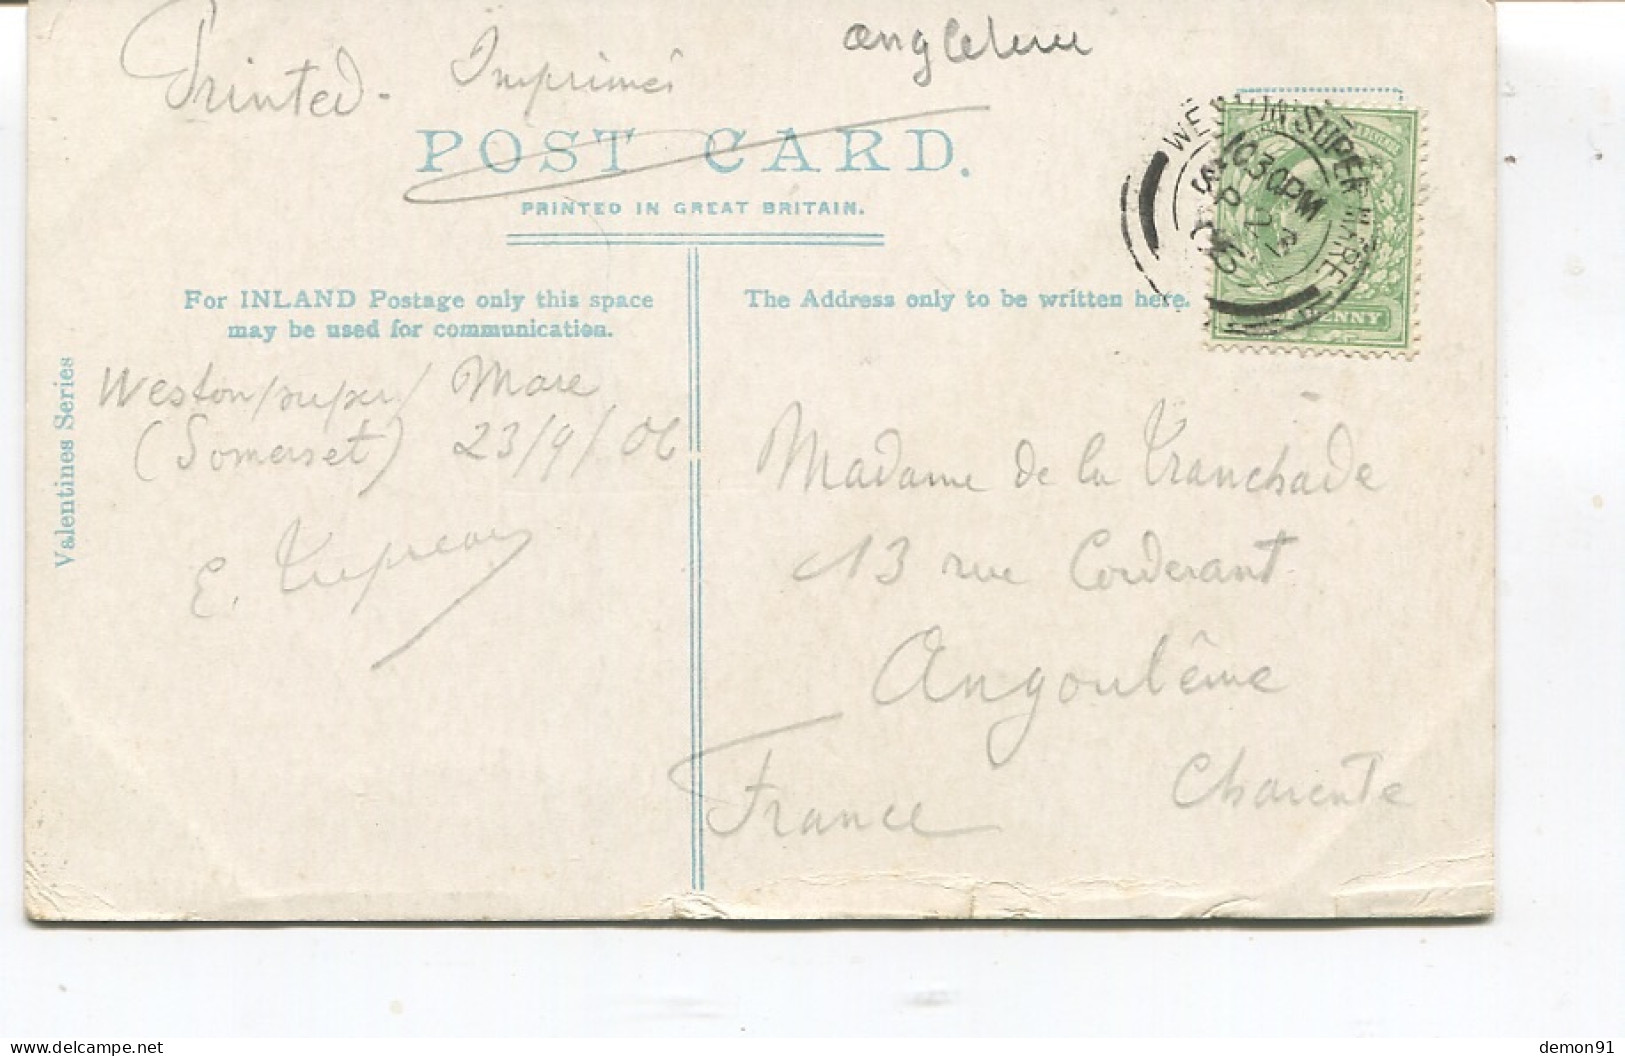 Printed. Imprimés
Angleterre
POST CARD.
PRINTED IN GREAT BRITAIN.
WESTON SUPER MARE
10 30 PM
SP 23
06
For INLAND Postage only this space
may be used for communication.
The Address only to be written here.
Valentines Series
Weston/super/Mare
(Somerset) 23/9/06
E.
Madame de la Tranchade
13 rue Corderant
Angoulême
France
Charente
demon91